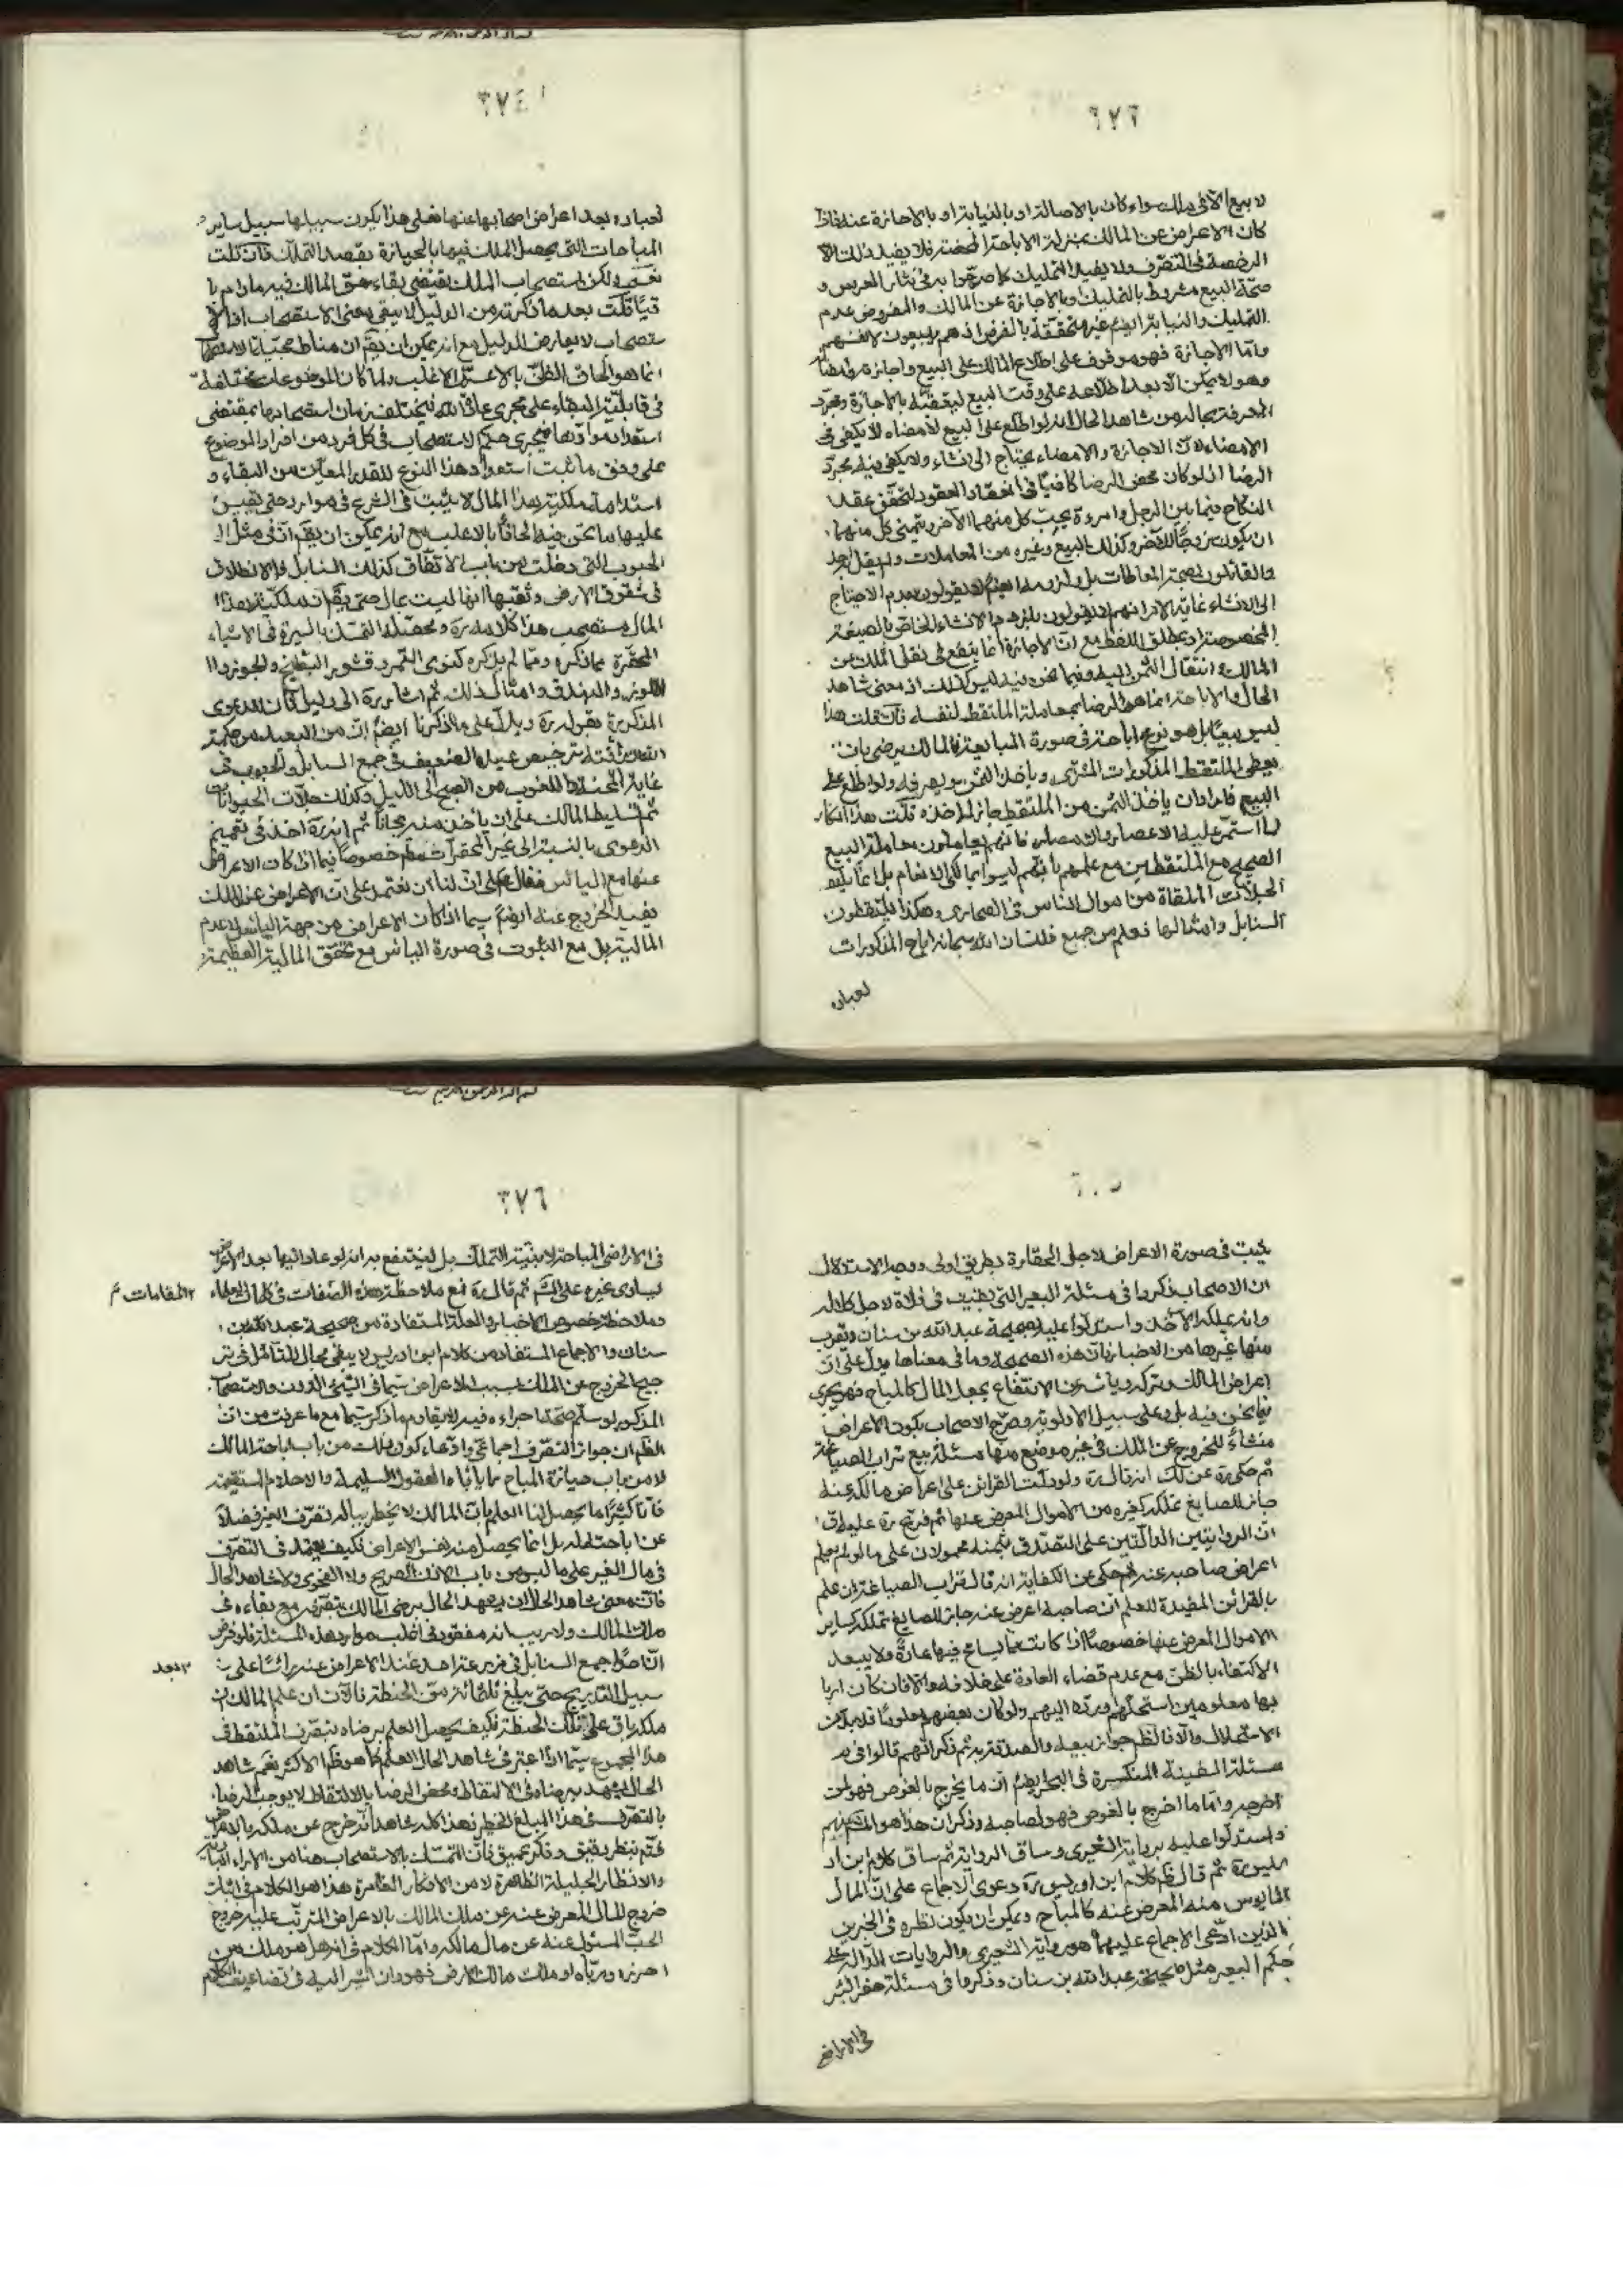 لا بيع الا فى ملك سواء كان بالاصالة او بالنيابة او بالاجازة عنه فاذا
كان الاعراض عن المالك بمنزلة الاباحة المحضة فلا يفيد ذلك الا
الرخصة فى التصرف ولا يفيد التمليك كما صرحوا به فى نثار العرس و
صحة البيع مشروط بالتمليك او بالاجازة عن المالك والمفروض عدم
التمليك والنيابة ايضا غير متحققة بالفرض اذ هم يبيعون لانفسهم
واما الاجازة فهو موقوف على اطلاع المالك على البيع واجازته
وهو لا يمكن الا بعد اطلاعه على وقت البيع ليعقبه بالاجازة ومجرد
المعرفة بحاله من شاهد الحال انه لو اطلع على البيع لامضاه لا يكفى فى
الامضاء لان الاجازة والامضاء يحتاج الى انشاء ولا يكفى فيه مجرد
الرضا اذ لو كان محض الرضا كافيا فى انعقاد العقود لتحقق عقد
النكاح فيما بين الرجل وامرءة يحب كل منهما الآخر ويتمنى كل منهما
ان يكون زوجا للآخر وكذلك البيع وغيره من المعاملات ولم يقل احد
والقائلون بصحة المعاطات بل ولزومها ايضا لا يقولون بعدم الاحتياج
الى الانشاء غاية الامر انهم لا يقولون بلزوم الانشاء الخاص بالصيغة
المخصوصة او بمطلق اللفظ مع ان الاجازة انما ينفع فى نقل الملك من
المالك و انتقال الثمن اليه وفيما نحن فيه ليس كذلك اذ معنى شاهد
الحال والاباحة انما هو الرضا بمعاملة الملتقط لنفسه فان قلت هذا
ليس بيعا بل هو نوع اباحة فى صورة المبايعة فالمالك يرضى بان
يعطى الملتقط المذكورات المشترى وياخذ الثمن ويصرفه ولو اطلع على
البيع فاراد ان ياخذ الثمن من الملتقط جاز له اخذه قلت هذا انكار
لما استمر عليه الاعصار والامصار فانهم يعاملون معاملة البيع
الصحيح مع الملتقطين مع علمهم بانهم ليسوا بمالكى الانعام بل
الجلات الملقاة من اموال الناس فى الصحارى وهكذا يلتقطون
السنابل وامثالها فعلم من جميع ذلك ان الله سبحانه اباح المذكورات
لعباده
٣٧٤
لعباده بعد اعراض اصحابها عنها فعلى هذا يكون سبيلها سبيل ساير
المباحات التى يحصل الملك فيها بالحيازة بقصد التملك فان قلت
نعم ولكن استصحاب الملك يقتضى بقاء حق المالك فيه ما دام با
قيا قلت بعد ما ذكرته من الدليل لا يبقى معنى الاستصحاب اذ الا
ستصحاب لا يعارض الدليل مع انه يمكن ان يقم ان مناط حجية الاستصحاب
انما هو الحاق الظن بالاعم الاغلب ولما كان الموضوعات مختلفة
فى قابلية البقاء على مجرى عادة الله فيختلف زمان استصحابها بمقتضى
استعداد موادها فيجرى حكم الاستصحاب فى كل فرد من افراد الموضوع
على وفق ما ثبت استعداد هذا النوع للقدر المعين من البقاء و
استدامة ملكية هذا المال لا يثبت فى الشرع فى موارد حتى يقيس
عليها ما نحن فيه الحاقا بالاغلب مع انه يمكن ان يقم ان فى مثل
الحبوب التى دخلت من باب الاتفاق كذلك السنابل والانطلاق
فى شقوق الارض وثقبها انها ليست بمال حتى يقم ان ملكية هذا
المال مستصحب هذا كلامه ره ومحصله التمسك بالسيرة فى الاشياء
المحقرة مما ذكره ومما لم يذكره كنوى التمر وقشور البطيخ والجوز و
اللوز والبندق وامثال ذلك ثم اشار ره الى دليل ثان للدعوى
المذكورة بقوله ره ويدل على ما ذكرنا ايضا ان من البعيد من حكمة
الله ورافته ترخيص عبيده الضعيف فى جمع السنابل والحبوب فى
غاية المحنة واللغوب من الصبح الى الليل وكذلك جلات الحيوانات
ثم تسليط المالك على ان ياخذ منه مجانا ثم انه ره اخذ فى تعميم
الدعوى بالنسبة الى غير المحقرات خصوصا فيما اذا كان الاعراض
عنها مع الياس فقال على ان لنا ان نعتمد على ان الاعراض عن الملك
يفيد الخروج عنه ايضا سيما اذا كان الاعراض من جهة الياس لا عدم
المالية بل مع الثبوت فى صورة الياس مع تحقق المالية العظيمة
يثبت فى صورة الاعراض لاجل الحقارة بطريق اولى ووجه الاستدلال
ان الاصحاب ذكروا فى مسئلة البعير التى بقيت فى فلاة لاجل كلاله
وانه يملكه الآخذ واستدلوا عليه بصحيحة عبد الله بن سنان وتقرب
منها غيرها من الاخبار بان هذه الصحيحة وما فى معناها يدل على ان
اعراض المالك وتركه وياسه عن الانتفاع يجعل المال كالمباح فهو يجرى
فيما نحن فيه بل وعلى سبيل الاولوية وصرح الاصحاب بكون الاعراض
منشاء للخروج عن الملك فى غير موضع منها مسئلة بيع تراب الصياغة
ثم حكى ره عن لك انه قال ره ولو دلت القرائن على اعراض مالكه عنه
جاز للصايغ تملكه كغيره من الاموال المعرض عنها ثم فرع ره عليه
ان الروايتين الدالتين على التصدق بثمنه محمولان على ما لو لم يعلم
اعراض صاحبه عنه ثم حكى عن الكفاية انه قال تراب الصياغة ان علم
بالقرائن المفيدة للعلم ان صاحبه اعرض عنه جاز للصايغ تملكه كساير
الاموال المعرض عنها خصوصا اذا كانت مما يسامح فيها عادة ولا يبعد
الاكتفاء بالظن مع عدم قضاء العادة على خلافه والا فان كان اربا
بها معلومين استحلهم ورده اليهم ولو كان بعضهم معلوما فلا بد من
الاستحلال والا فالظ جواز بيعه والصدقة به ثم ذكر انهم قالوا فى
مسئلة السفينة المنكسرة فى البحر ايضا ان ما يخرج بالغوص فهو لمن
اخرجه واما ما اخرج بالغوص فهو لصاحبه وذكر ان هذا هو المشهور بينهم
واستدلوا عليه برواية الشعيرى وساق الرواية ثم ساق كلام ابن اد
ريس ره ثم قال ظ كلام ابن ادريس ره دعوى الاجماع على ان المال
المايوس منه المعرض عنه كالمباح ويمكن ان يكون نظره فى الخبرين
الذين ادعى الاجماع عليهما هو رواية الشعيرى والروايات الدالة على
حكم البعير مثل صحيحة عبد الله بن سنان وذكروا فى مسئلة حفر البئر
فى الاراضى
٣٧٦
فى الاراضى المباحة لا بنية التملك بل لينتفع به انه لو عاد اليها بعد الاعراض
يساوى غيره على ثم قال ره فمع ملاحظة هذه الصفات فى كلمات العلماء
المقامات
وملاحظة خصوص الاخبار والعلة المستفادة من صحيحة عبد الله بن
سنان والاجماع المستفاد من كلام ابن ادريس لا يبقى مجال للتامل فى تر
جيح الخروج عن الملك بسبب الاعراض سيما فى الشئ الدون والاستصحاب
المذكور لو سلم صحة اجراءه فيه لا يقاوم ما ذكر سيما مع ما عرفت من ان
الظ ان جواز التصرف اجماعى وادعاء كون ذلك من باب اباحة المالك
لا من باب حيازة المباح مما ياباه العقول السليمة والاحلام المستقيمة
فانا كثيرا ما يحصل لنا العلم بان المالك لا يخطر بباله تصرف الغير فضلا
عن اباحته له بل انما يحصل منه نفس الاعراض فكيف يعتمد فى التصرف
فى مال الغير على ما ليس من باب الاذن الصريح ولا الفحوى ولا شاهد الحال
فان معنى شاهد الحال ان يشهد الحال برضى المالك بتصرفه مع بقاءه فى
ملك المالك ولا ريب انه مفقود فى اغلب موارد هذه المسئلة فلو فرض
ان احدا جمع السنابل فى مزرعة احد عند الاعراض عنه على
بعد
سبيل التدريج حتى يبلغ ثلثمائة من الحنطة فالآن ان علم المالك ان
ملكه باق على تلك الحنطة فكيف يحصل العلم برضاه بتصرف الملتقط فى
هذا المجموع سيما اذا اعتبر فى شاهد الحال العلم كما هو ظ الاكثر نعم شاهد
الحال يشهد برضاه فى الالتقاط ومحض الرضا بالالتقاط لا يوجب الرضا
بالتصرف فى هذا المبلغ الخطير فهذا كله شاهد انه خرج عن ملكه بالاعراض
فتم بنظر دقيق وفكر عميق فان التمسك بالاستصحاب هنا من الاراء
والانظار الجليلة الظاهرة لا من الافكار الغامرة هذا هو الكلام فى اثبات
خروج المال المعرض عنه عن ملك المالك بالاعراض المترتب عليه خروج
الحب المسئول عنه عن مال مالكه واما الكلام فى انه هل هو ملك من
احرزه ورباه او ملك مالك الارض فهو وان اشير اليه فى تضاعيف الكلام